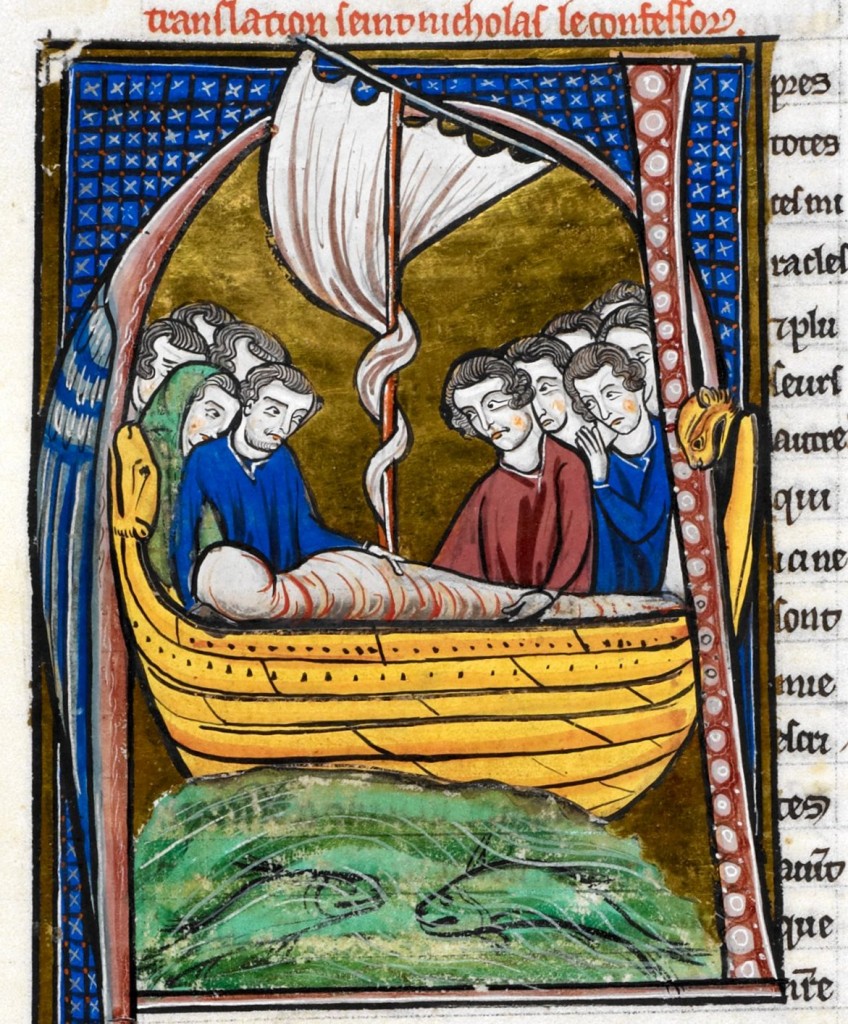 translation seint nicholas le confessor.
pres
totes
ces mi
racles
⁊ plu
seurs
autre
qui
ici ne
sont
mie
escri
tes
que
nr̄e